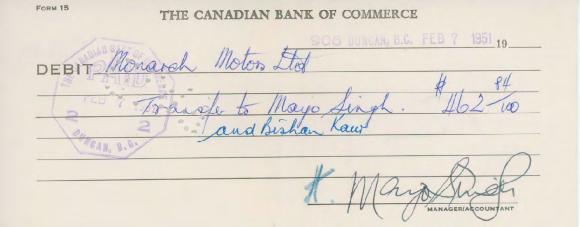 FORM 15
THE CANADIAN BANK OF COMMERCE
908 DUNCAN, B.C. FEB 7 1951 19
DEBIT Monarch Motors Ltd
THE CANADIAN BANK OF COMMERCE
PAID
FEB 7
2 2
DUNCAN, B.C.
Transfer to Mayo Singh. $462 84/100
and Bishan Kaur
K. Mayo Singh
MANAGER/ACCOUNTANT